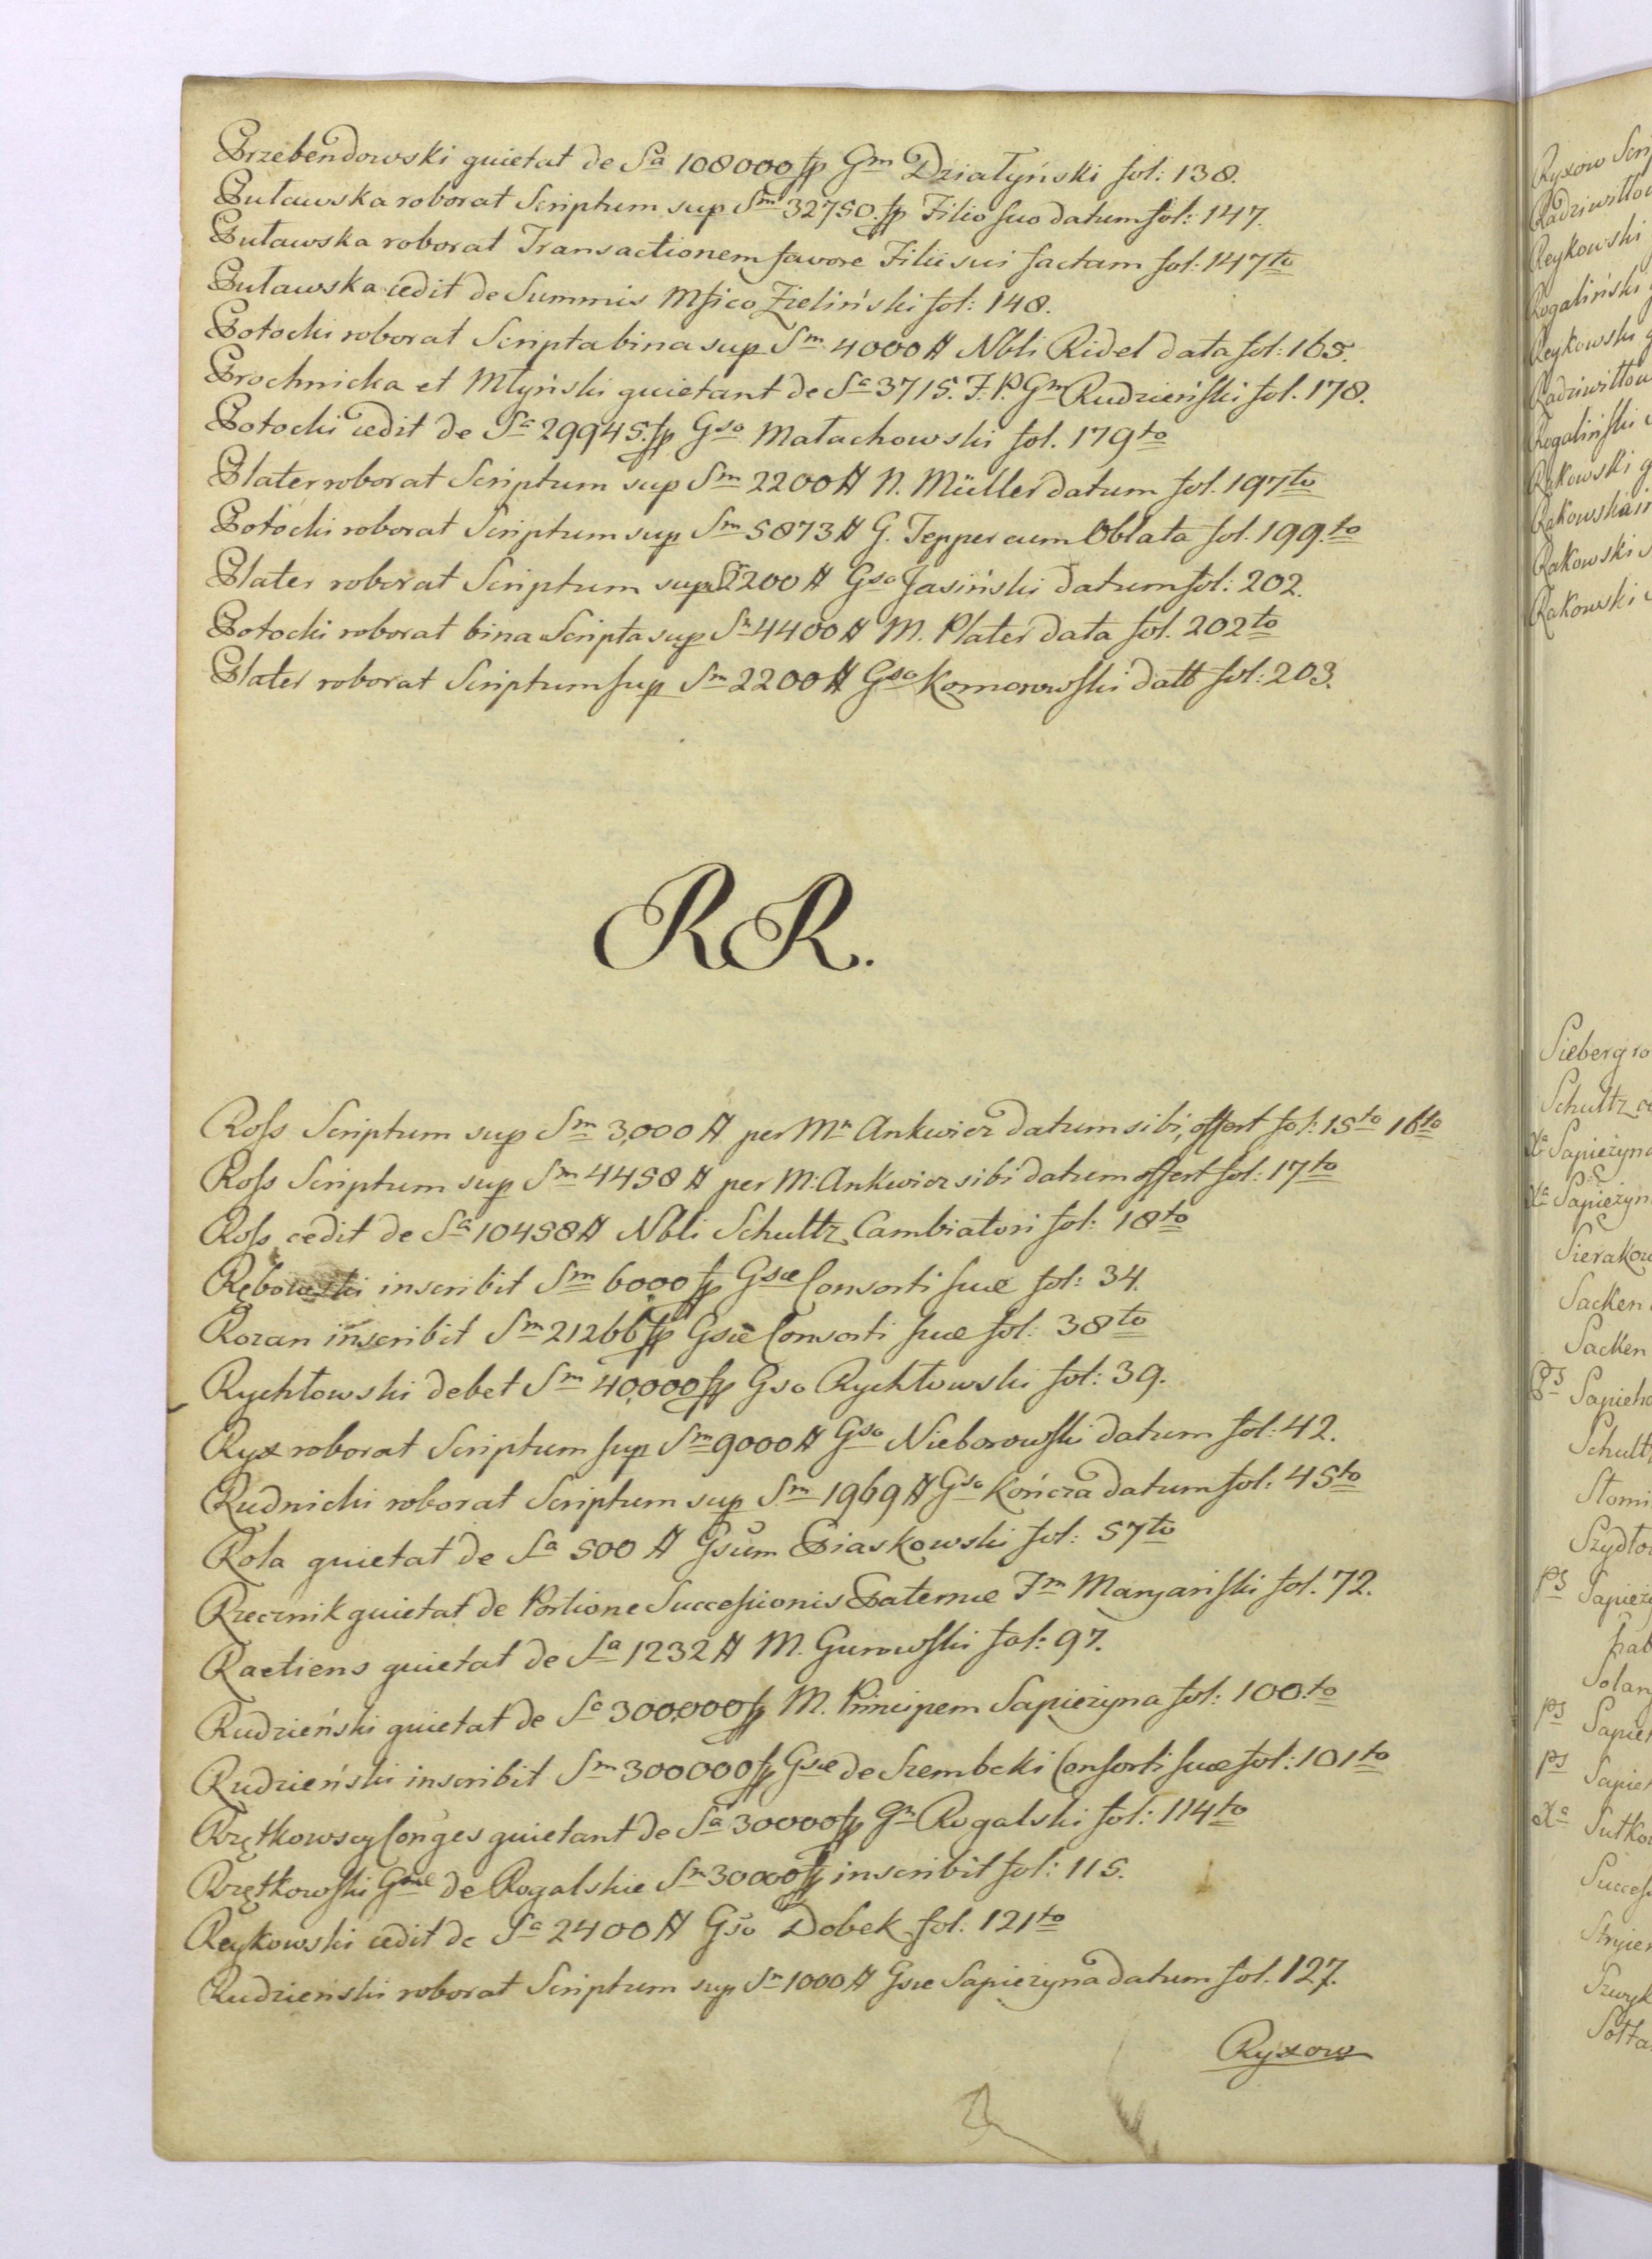 Przebendowski quietat de Sa 108000 fp Gm Działyński fol: 138.
Puławska roborat Scriptum sup Sm 32750. fp Filio suo datum fol: 147.
Puławska roborat Transactionem favore Filii sui factam fol: 147to
Puławska cedit de Summis Mfico Zieliński fol: 148.
Potocki roborat Scripta bina sup Sm 4000 # Nbli Ridel data fol: 165.
Prochnicka et Młyński quietant de Sa 3715. F. P. Gm Rudzieński fol. 178.
Potocki cedit de Sa 29945. fp Gso Małachowski fol. 179to
Plater roborat Scriptum sup Sm 2200 # N. Müller datum fol. 197to
Potocki roborat Scriptum sup Sm 5873 # G. Tepper cum Oblata fol. 199.to
Plater roborat Scriptum sup 2200 # Gso Jasiński datum fol: 202.
Potocki roborat bina Scripta sup Sm 4400 # M. Plater data fol. 202to
Plater roborat Scriptum sup Sm 2200 # Gso Komorowski datt fol: 203.
RR.
Ross Scriptum sup Sm 3,000 # per Mn Ankwicz datum sibi, offert fol: 15to 16to
Ross Scriptum sup Sm 4458 # per M: Ankwicz sibi datum offert fol: 17to
Ross cedit de Sa 10458 # Nbli Schultz Cambiatori fol: 18to
Rębowski inscribit Sm 6000 fp Gsæ Consorti suæ fol: 34.
Rozan inscribit Sm 21266 fp Gsæ Consorti suæ fol: 38to
Rychłowski debet Sm 40,000 fp Gso Rychłowski fol: 39.
Ryx roborat Scriptum sup Sm 9000 # Gso Nieborowski datum fol: 42.
Rudnicki roborat Scriptum sup Sm 1969 # Gso Kończa datum fol: 45to
Rola quietat de Sa 500 # Gsum Piaskowski fol: 57to
Rzecznik quietat de Portione Successionis Paternæ Fm Maryański fol. 72.
Raetiens quietat de Sa 1232 # M. Gurowski fol: 97.
Rudzieński quietat de Sa 300,000 fp M. Principem Sapieżyna fol: 100.to
Rudzieński inscribit Sm 300000 fp Gsæ de Szembeki Consorti suæ fol: 101to
Rzętkowscy Conges quietant de Sa 30000 fp Gm Rogalski fol: 114to
Rzętkowski Gsæ de Rogalskie Sm 30000 fp inscribit fol: 115.
Reykowski cedit de Sa 2400 # Gso Dobek fol. 121to
Rudzieński roborat Scriptum sup Sm 1000 # Gsæ Sapieżyna datum fol. 127.
Ryxow
Ryxow
Reykowski
Rogaliński
Reykowski
Rogaliński
Rakowski
Rakowska
Rakowski
Rakowski
Sieberg
Schultz
Sapieżyna
Sacken
Sacken